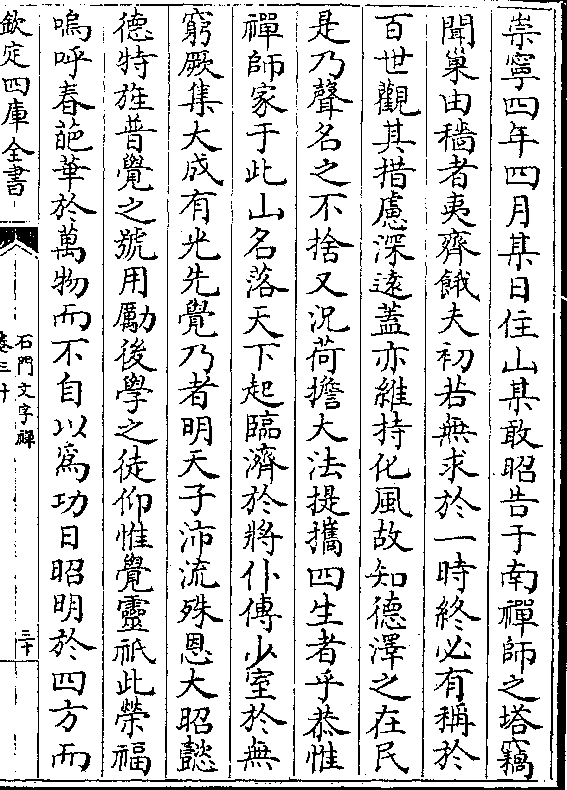 崇寧四年四月某日住山某敢昭告于南禪師之塔竊
聞巢由穡者夷齊餓夫初若無求於一時終必有稱於
百世觀其措慮深遠蓋亦維持化風故知德澤之在民
是乃聲名之不捨又況荷擔大法提攜四生者乎恭惟
禪師家于此山名落天下起臨濟於將仆傳少室於無
窮厥集大成有光先覺乃者明天子沛流殊恩大昭懿
德特旌普覺之號用勵後學之徒仰惟覺靈祇此榮福
嗚呼春葩華於萬物而不自以為功日昭明於四方而
欽定四庫全書
石門文字禪
卷三十
三十